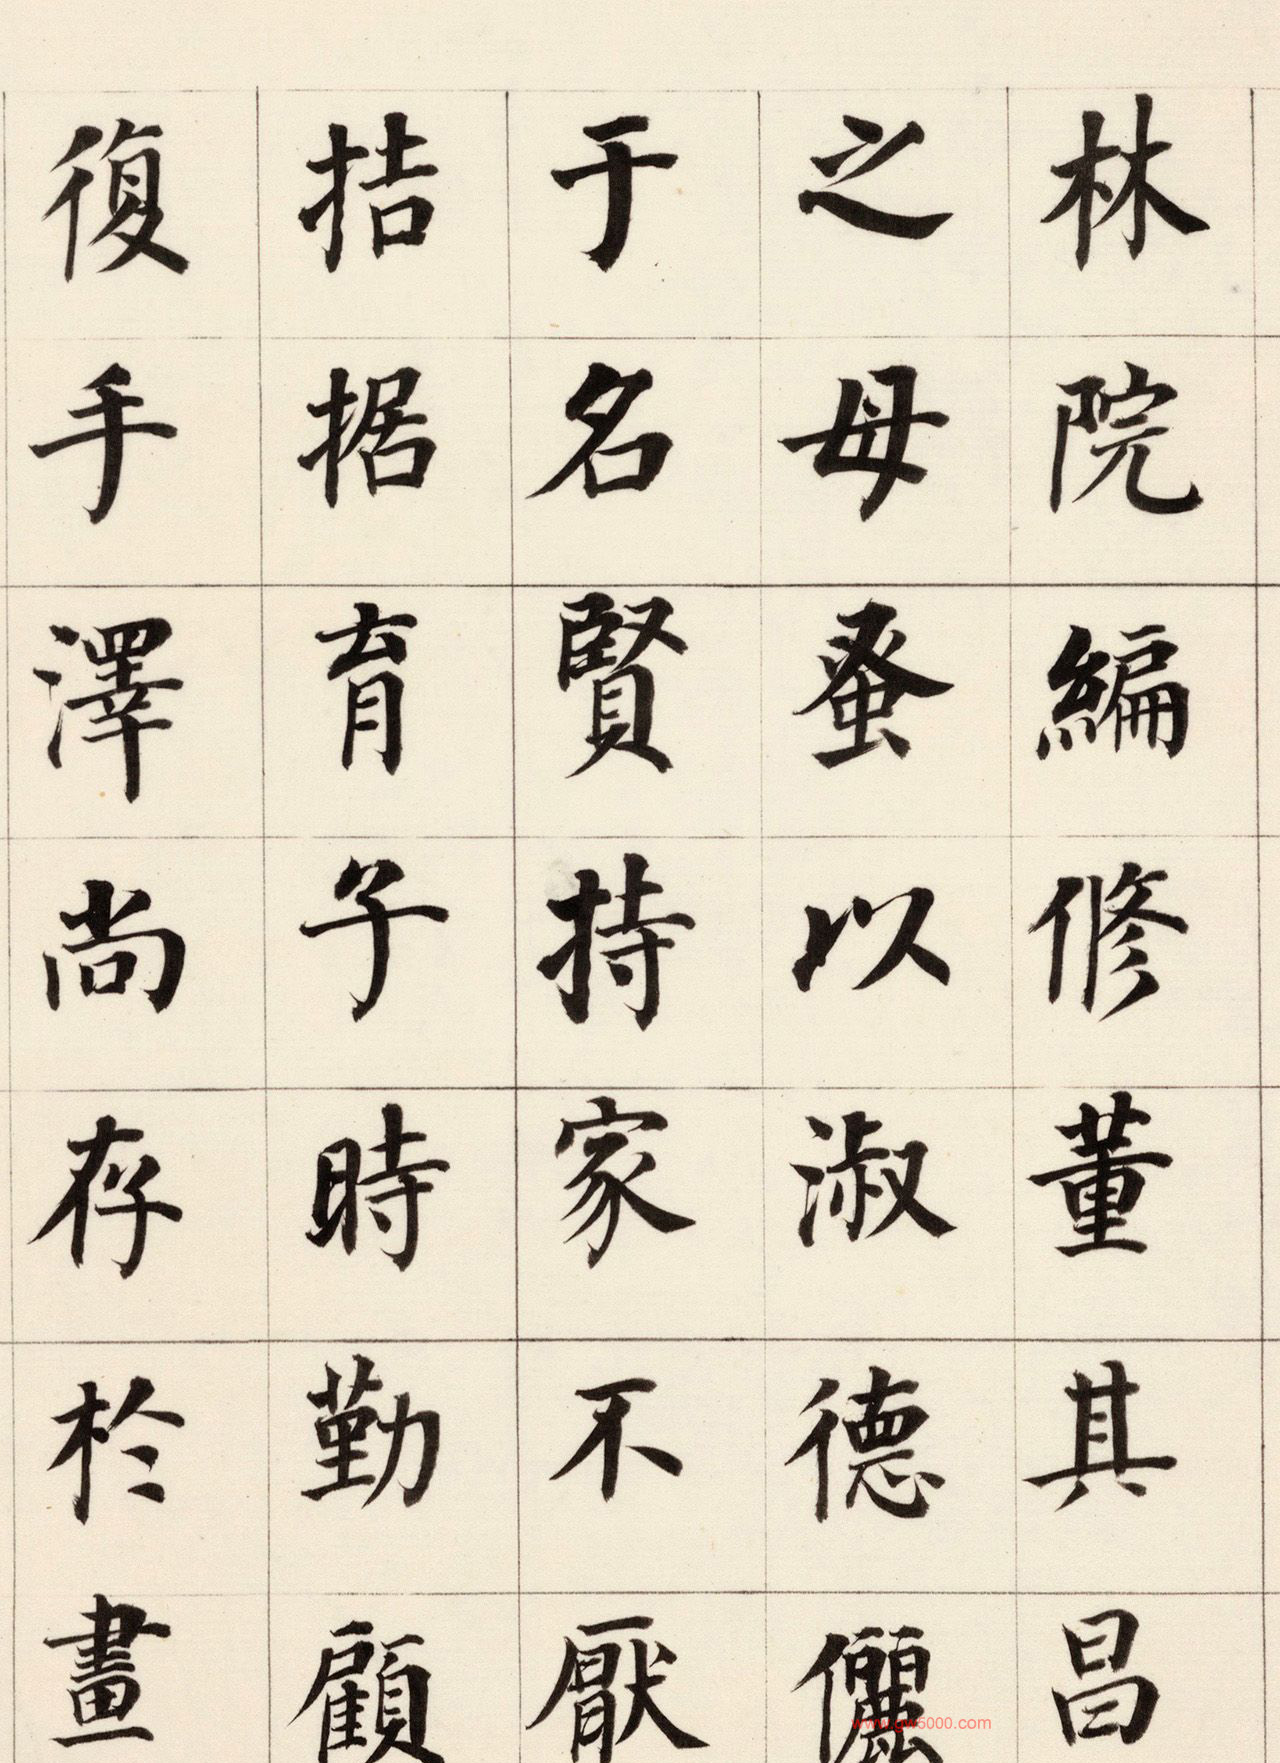 林院編修董其昌
之母蚤以淑德儷
于名賢持家不厭
拮据育子時勤顧
復手澤尚存於畫
www.gt45000.com